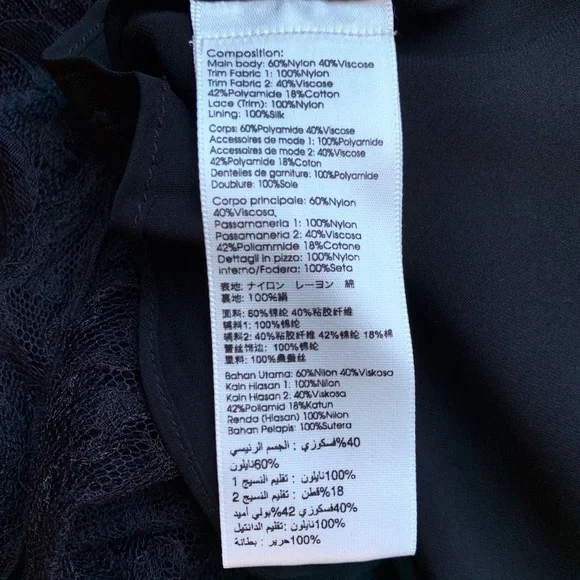 Composition:
Main body: 60%Nylon 40%Viscose
Trim Fabric 1: 100%Nylon
Trim Fabric 2: 40%Viscose
42%Polyamide 18%Cotton
Lace (Trim): 100%Nylon
Lining: 100%Silk
Corps: 60%Polyamide 40%Viscose
Accessoires de mode 1: 100%Polyamide
Accessoires de mode 2: 40%Viscose
42%Polyamide 18%Coton
Dentelles de garniture: 100%Polyamide
Doublure: 100%Soie
Corpo principale: 60%Nylon
40%Viscosa,
Passamaneria 1: 100%Nylon
Passamaneria 2: 40%Viscosa
42%Poliammide 18%Cotone
Dettagli in pizzo: 100%Nylon
interno/Fodera: 100%Seta
表地: ナイロン レーヨン 綿
裏地: 100%絹
面料: 60%锦纶 40%粘胶纤维
辅料1: 100%锦纶
辅料2: 40%粘胶纤维 42%锦纶 18%棉
蕾丝饰边: 100%锦纶
里料: 100%桑蚕丝
Bahan Utama: 60%Nilon 40%Viskosa
Kain Hiasan 1: 100%Nilon
Kain Hiasan 2: 40%Viskosa
42%Poliamid 18%Katun
Renda (Hiasan) 100%Nilon
Bahan Pelapis: 100%Sutera
40%فسكوزي : الجسم الرئيسي
60%نايلون
100%نايلون : تقليم النسيج 1
18%قطن : تقليم النسيج 2
40%فسكوزي 42%بولي أميد
100%نايلون : تقليم الدانتيل
100%حرير : بطانة